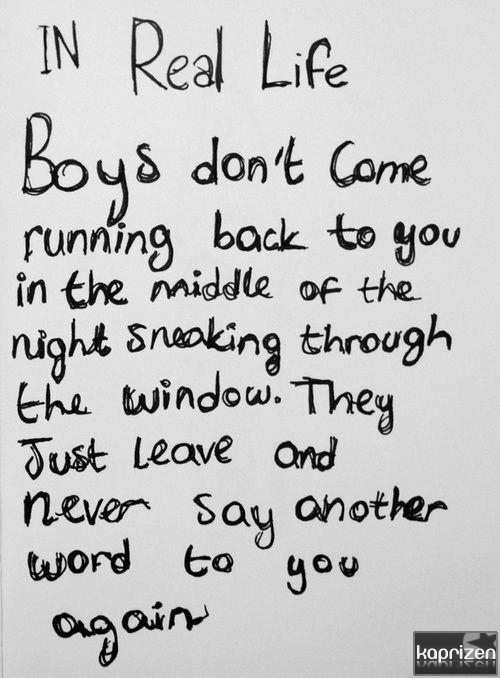 IN Real Life
Boys don't Come
running back to you
in the middle of the
night sneaking through
the window. They
Just leave and
never say another
word to you
again
kaprizen